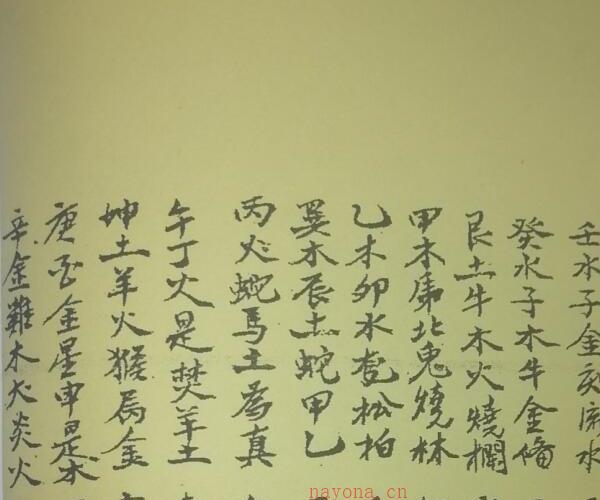 壬水子金亥流水
癸水子木牛金備
艮土牛木火燒欄
甲木虎北兔燒林
乙木卯水䒤松柏
巽木辰土蛇甲乙
丙火蛇馬土為真
午丁火是焚羊土
坤土羊火猴局金
庚酉金星申是木
辛金雞木犬炎火
navona.cn